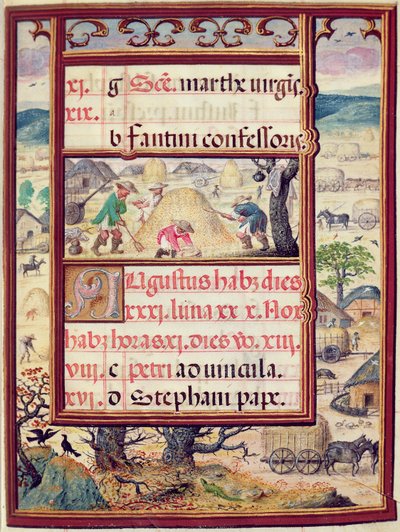 xj. g Scē. marthx virgīs.
xix. a
b Fantini confessoris.
Augustus habz dies
xxxj. luna xx x. Nox
habz horas xj. dies v̄o. xiii.
viii. c petri ad uincula.
xvi. d Stephani pape.